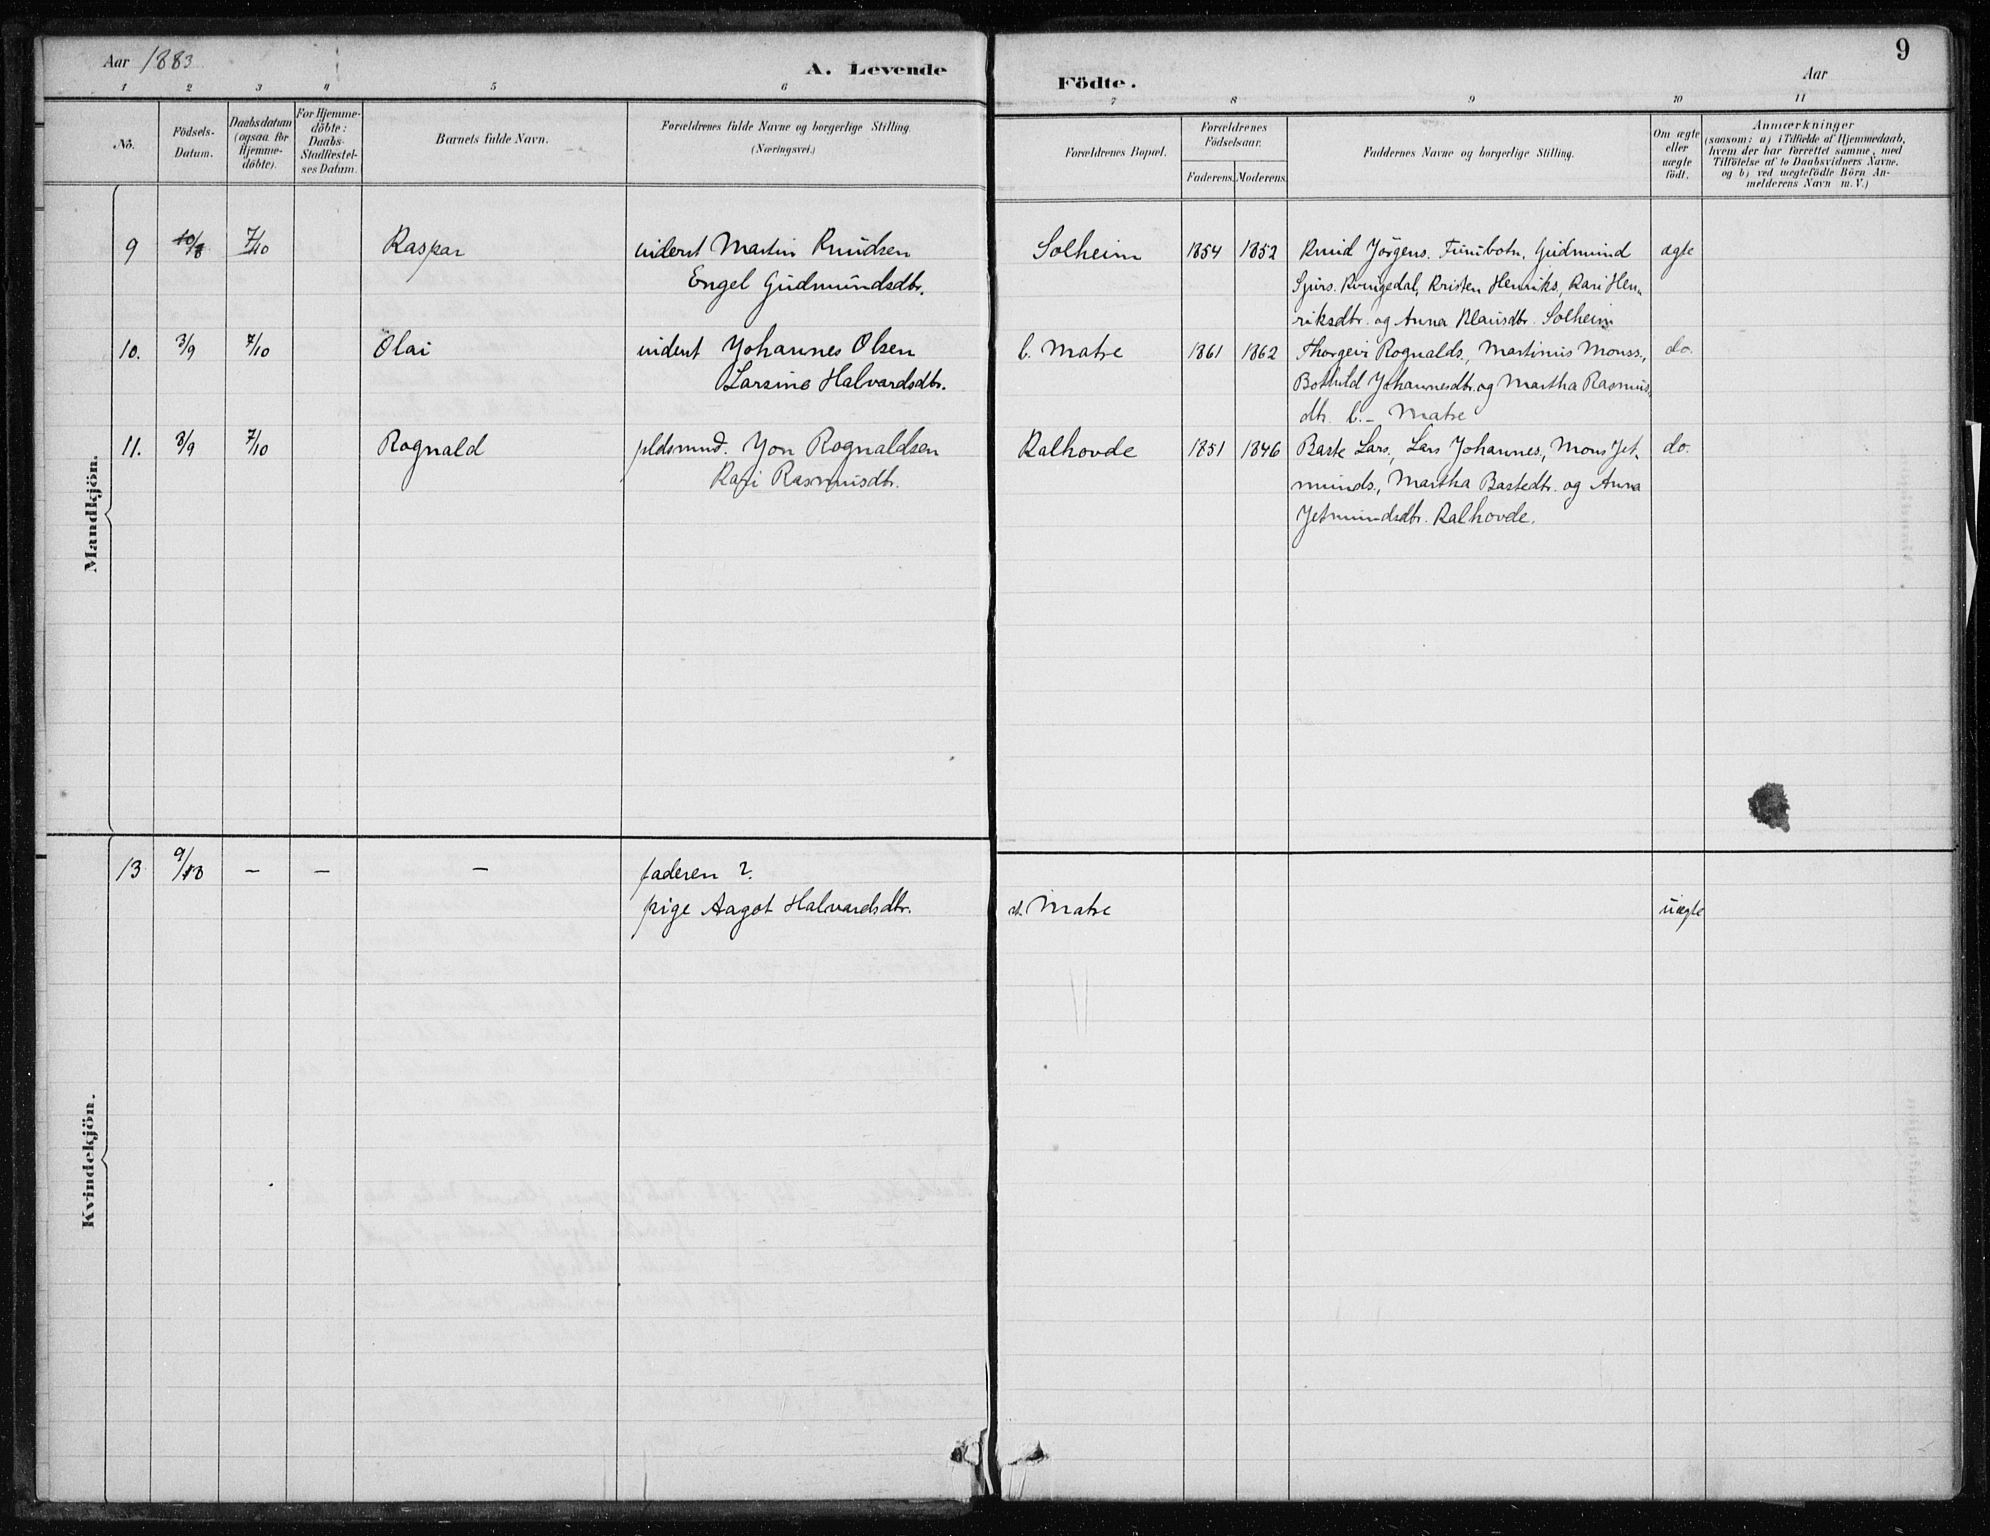 Aar 1883
A. Levende
Födte.
Aar
9
1 2 3 4 5 6 7 8 9 10 11
No.
Födsels-Datum.
Daabsdatum (ogsaa for Hjemmedöbte).
For Hjemmedöbte: Daabs-Stadfæstelses Datum.
Barnets fulde Navn.
Forældrenes fulde Navne og borgerlige Stilling. (Næringsvei.)
Forældrenes Bopæl.
Forældrenes Födselsaar.
Faderens. Moderens.
Faddernes Navne og borgerlige Stilling.
Om ægte eller uægte födt.
Anmærkninger
(saasom: a) i Tilfælde af Hjemmedaab, hvem der har forrettet samme, med Tilföielse af to Daabsvidners Navne, og b) ved uægtefödte Börn Anmelderens Navn m. V.)
Mandkjön.
9 10/8 7/10 Kaspar inderst Martin Knudsen Solheim 1854 1852 Knud Jörgens. Fuunbotn, Gudmund ægte
Engel Gudmundsdtr. Sjurs. Kvingedal, Kristen Henriks., Kari Hen-
riksdtr. og Anna Klausdtr. Solheim
10. 3/9 7/10 Olai inderst Johannes Olsen l. Matre 1861 1862 Thorgeir Rognalds, Martinus Monss., do.
Larsine Halvardsdtr. Bothild Johannesdtr. og Martha Rasmus-
dtr. l. – Matre
11. 3/9 7/10 Rognald pldsmnd. Jon Rognaldsen Kalhovde 1851 1846 Baste Lars., Lars Johannes, Mons Jet- do.
Kari Rasmusdtr. munds., Martha Bastedtr. og Anna
Jetmundsdtr. Kalhovde.
Kvindekjön.
13 9/10 – – – faderen ?
pige Aagot Halvardsdtr. st. Matre uægte